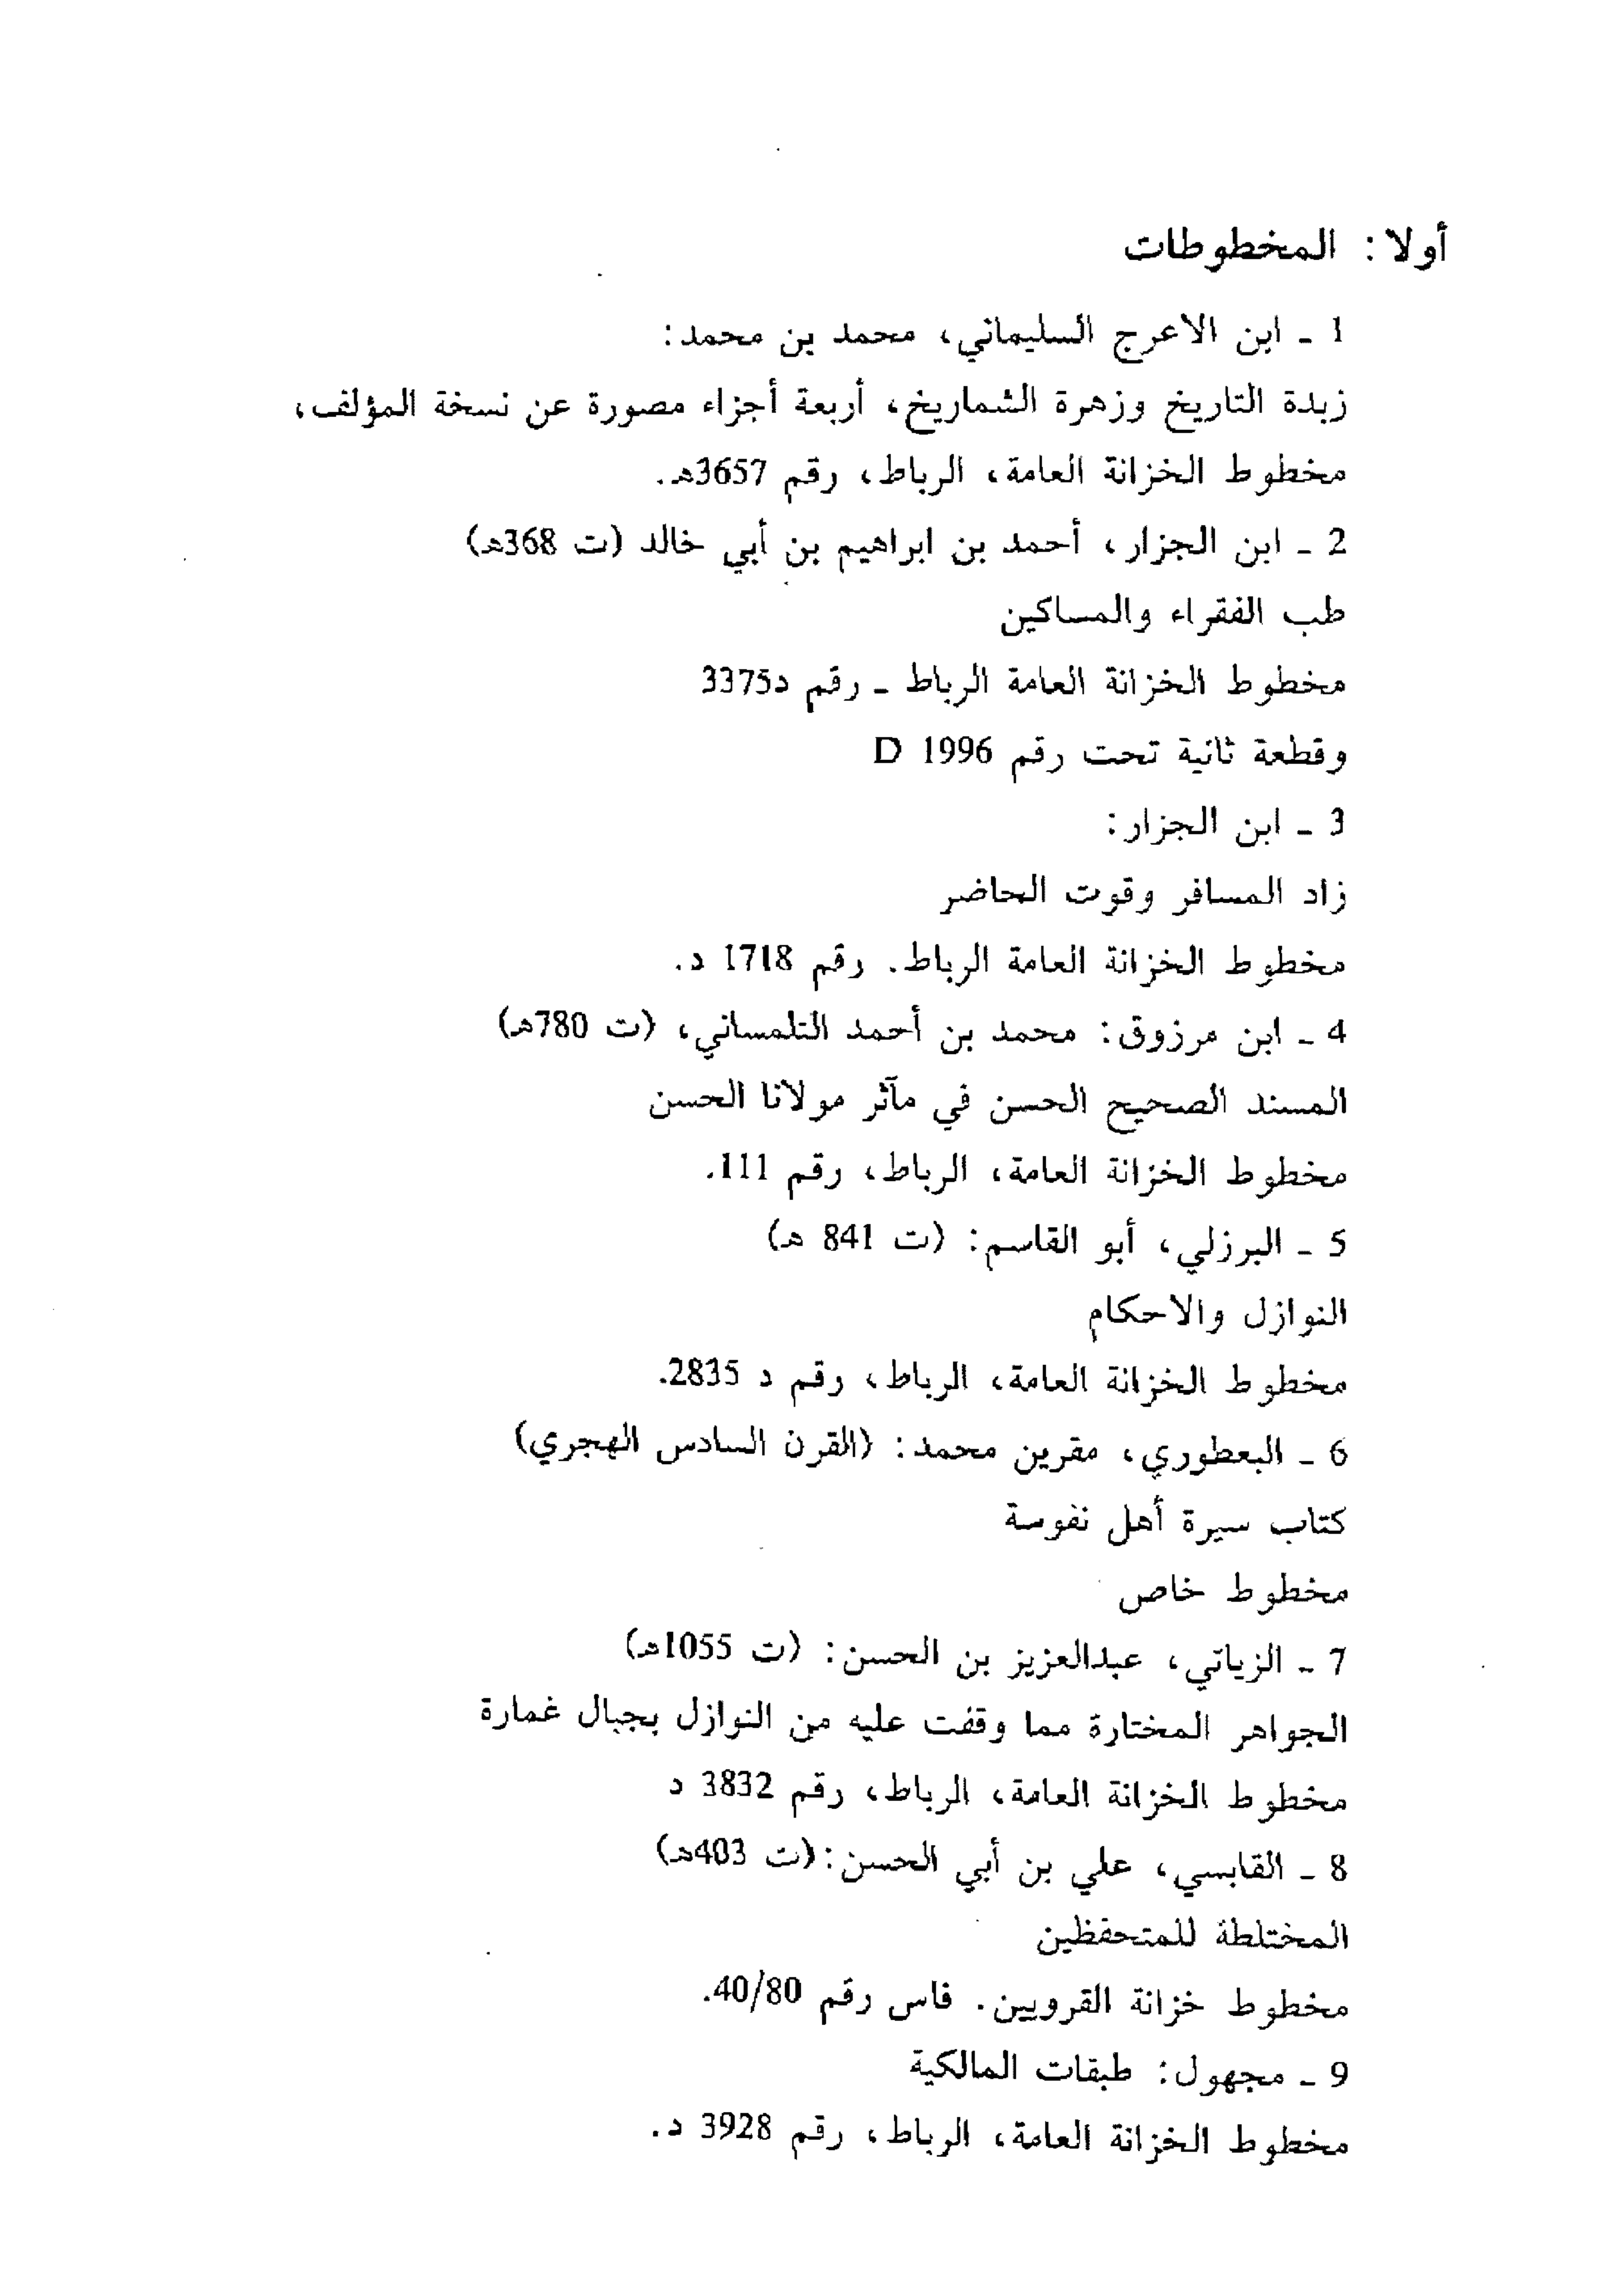 أولا: المخطوطات
1 ـ ابن الاعرج السليماني، محمد بن محمد:
زبدة التاريخ وزهرة الشماريخ، أربعة أجزاء مصورة عن نسخة المؤلف،
مخطوط الخزانة العامة، الرباط، رقم 3657هـ.
2 ـ ابن الجزار، أحمد بن ابراهيم بن أبي خالد (ت 368هـ)
طب الفقراء والمساكين
مخطوط الخزانة العامة الرباط ـ رقم د3375
وقطعة ثانية تحت رقم D 1996
3 ـ ابن الجزار:
زاد المسافر وقوت الحاضر
مخطوط الخزانة العامة الرباط. رقم 1718 د.
4 ـ ابن مرزوق: محمد بن أحمد التلمساني، (ت 780هـ)
المسند الصحيح الحسن في مآثر مولانا الحسن
مخطوط الخزانة العامة، الرباط، رقم 111.
5 ـ البرزلي، أبو القاسم: (ت 841 هـ)
النوازل والاحكام
مخطوط الخزانة العامة، الرباط، رقم د 2835.
6 ـ البعطوري، مقرين محمد: (القرن السادس الهجري)
كتاب سيرة أهل نفوسة
مخطوط خاص
7 ـ الزياتي، عبدالعزيز بن الحسن: (ت 1055هـ)
الجواهر المختارة مما وقفت عليه من النوازل بجبال غمارة
مخطوط الخزانة العامة، الرباط، رقم 3832 د
8 ـ القابسي، علي بن أبي الحسن:(ت 403هـ)
المختلطة للمتحفظين
مخطوط خزانة القرويين. فاس رقم 40/80.
9 ـ مجهول: طبقات المالكية
مخطوط الخزانة العامة، الرباط، رقم 3928 د.